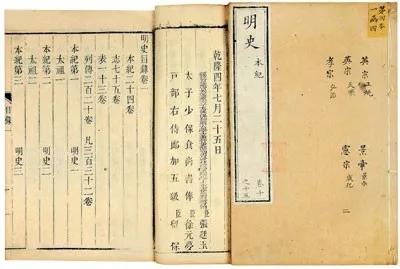 第四本
英宗 正統
景帝 景泰
英宗 天順
憲宗 成化
孝宗 弘治
二
明史 本紀 卷十之十五
乾隆四年七月二十五日
臣張廷玉
太子少保食尚書俸臣徐元夢
戶部右侍郎加五級臣留保
明史目錄卷一
本紀二十四卷
志七十五卷
表一十三卷
列傳二百二十卷 凡三百三十二卷
本紀第一 明史一
太祖一
本紀第二 明史二
太祖二
本紀第三 明史三
目錄